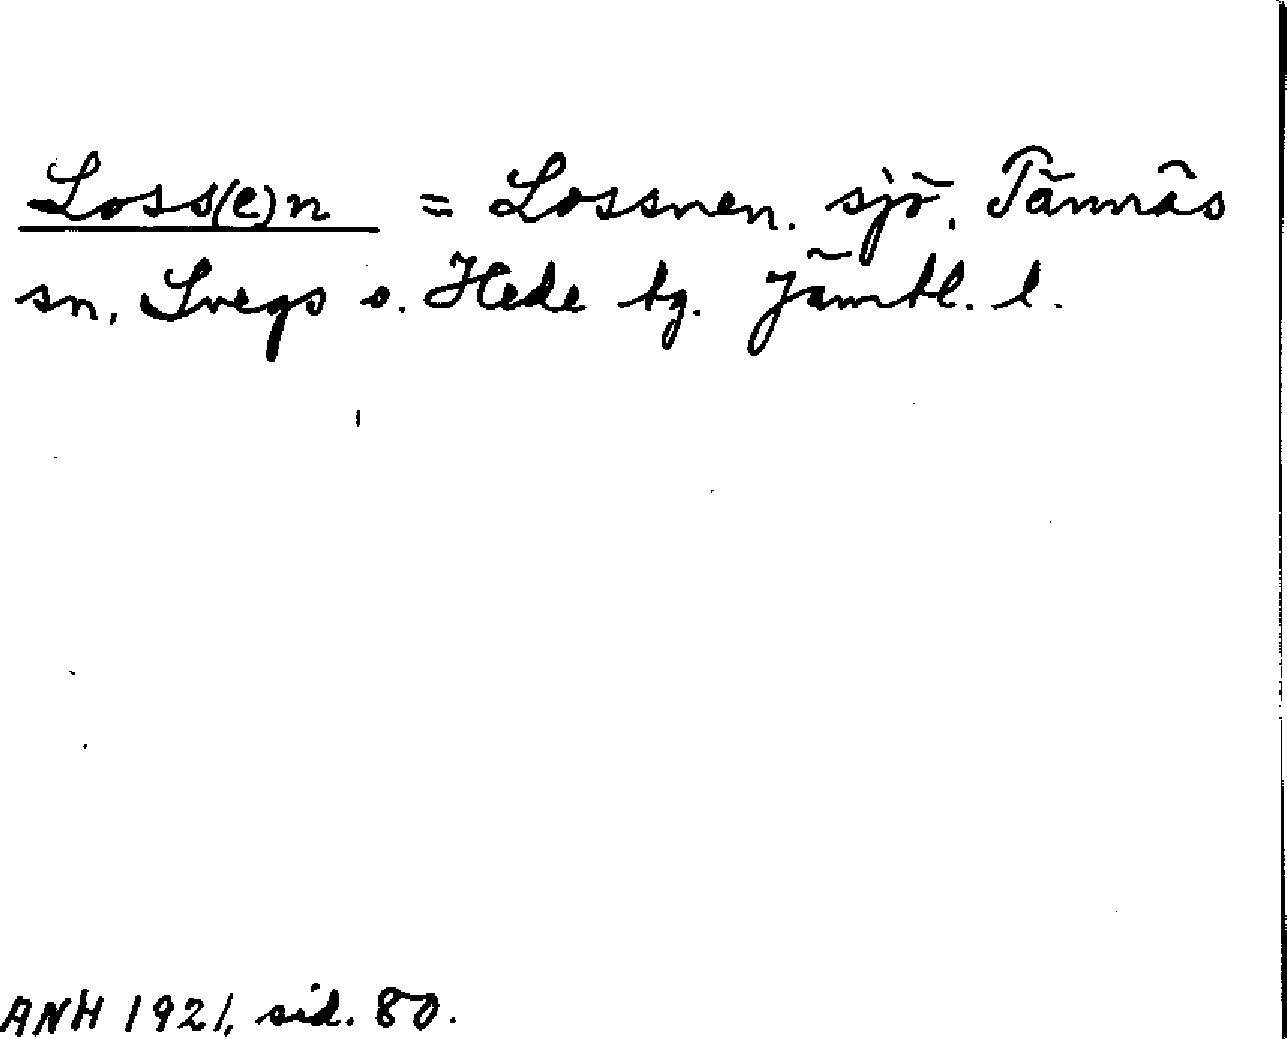 Loss(e)n = Lossnen. sjö. Tännäs
sn. Svegs o. Hede tg. Jämtl. l.
ANH 1921, sid. 80.